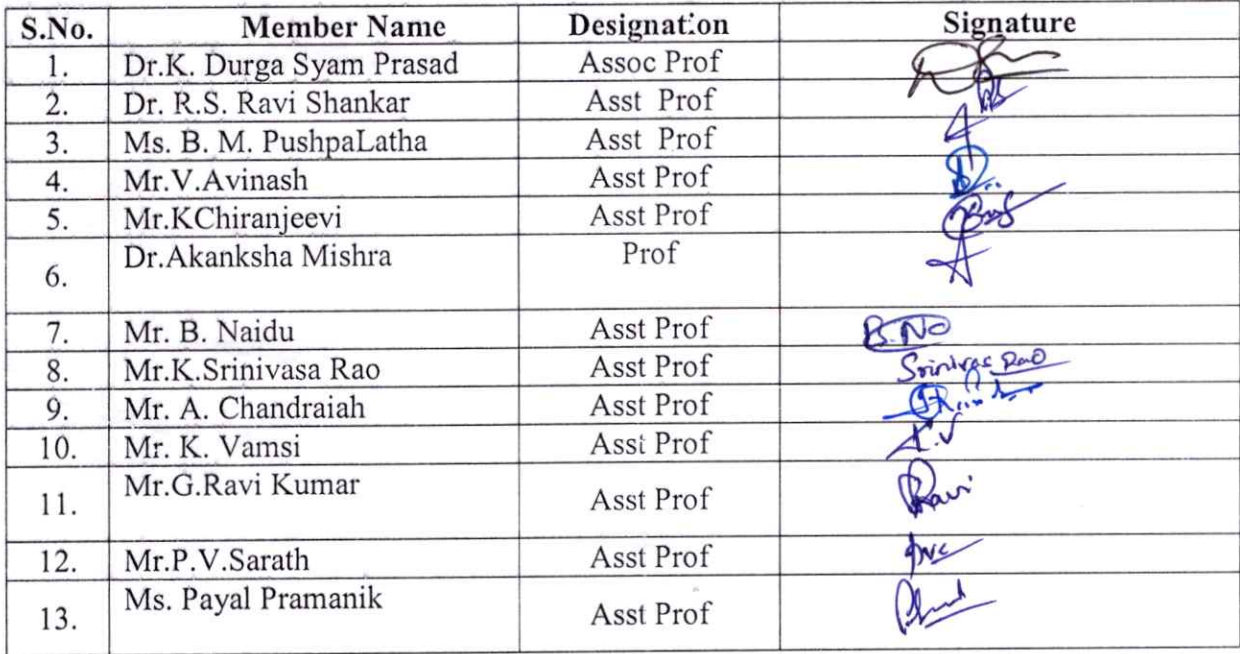 S.No. Member Name Designation Signature
1. Dr.K. Durga Syam Prasad Assoc Prof
2. Dr. R.S. Ravi Shankar Asst Prof
3. Ms. B. M. PushpaLatha Asst Prof
4. Mr.V.Avinash Asst Prof
5. Mr.KChiranjeevi Asst Prof
6. Dr.Akanksha Mishra Prof
7. Mr. B. Naidu Asst Prof B.ND
8. Mr.K.Srinivasa Rao Asst Prof Srinivas Rao
9. Mr. A. Chandraiah Asst Prof
10. Mr. K. Vamsi Asst Prof K.V
11. Mr.G.Ravi Kumar Asst Prof Ravi
12. Mr.P.V.Sarath Asst Prof
13. Ms. Payal Pramanik Asst Prof